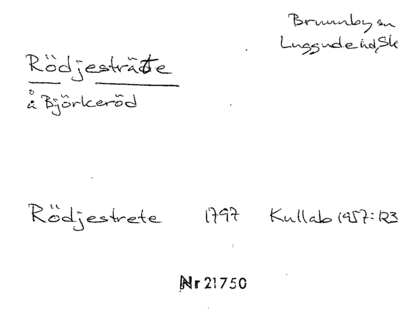 Brunnby sn
Luggude hd, Sk
Rödjesträte
å Björkeröd
Rödjestrete 1797 Kullab 1957:123
Nr 21750